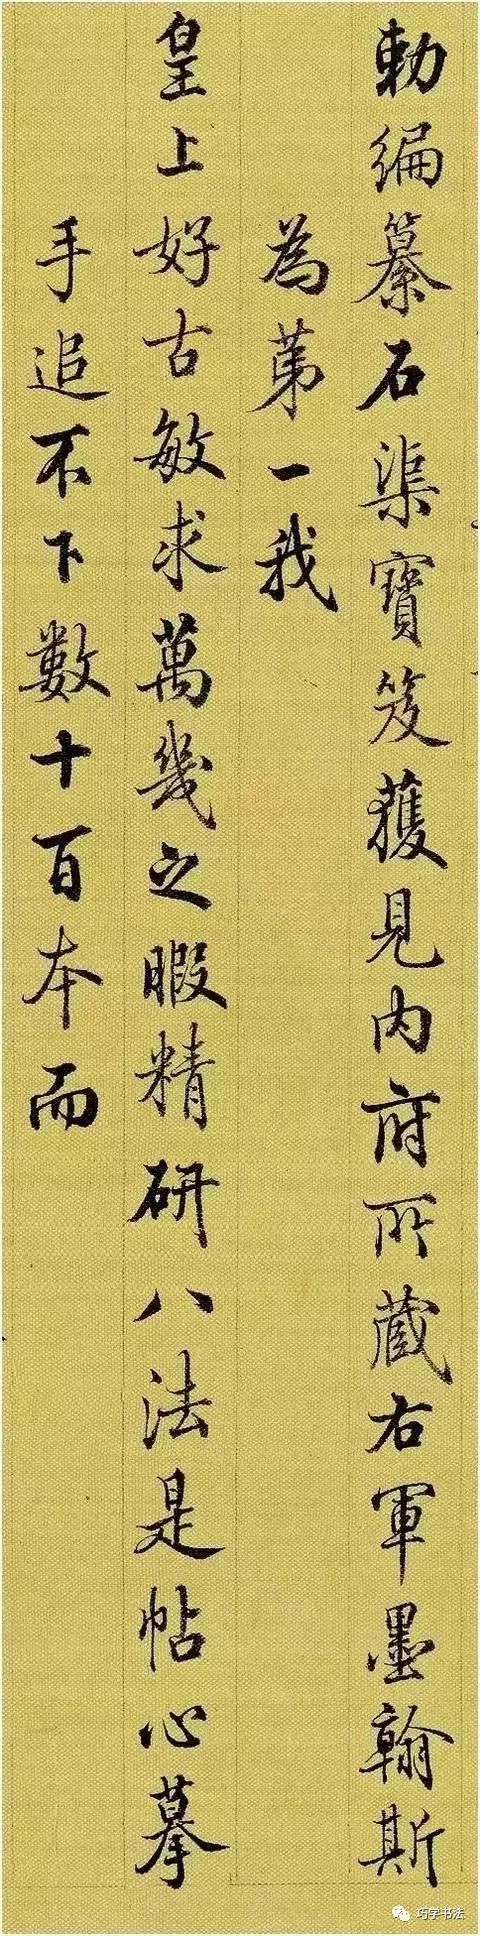 勅編纂石渠寶笈獲見内府所蔵右軍墨翰斯
為苐一我
皇上好古敏求萬幾之暇精研八法是帖心摹
手追不下數十百本而
巧学书法